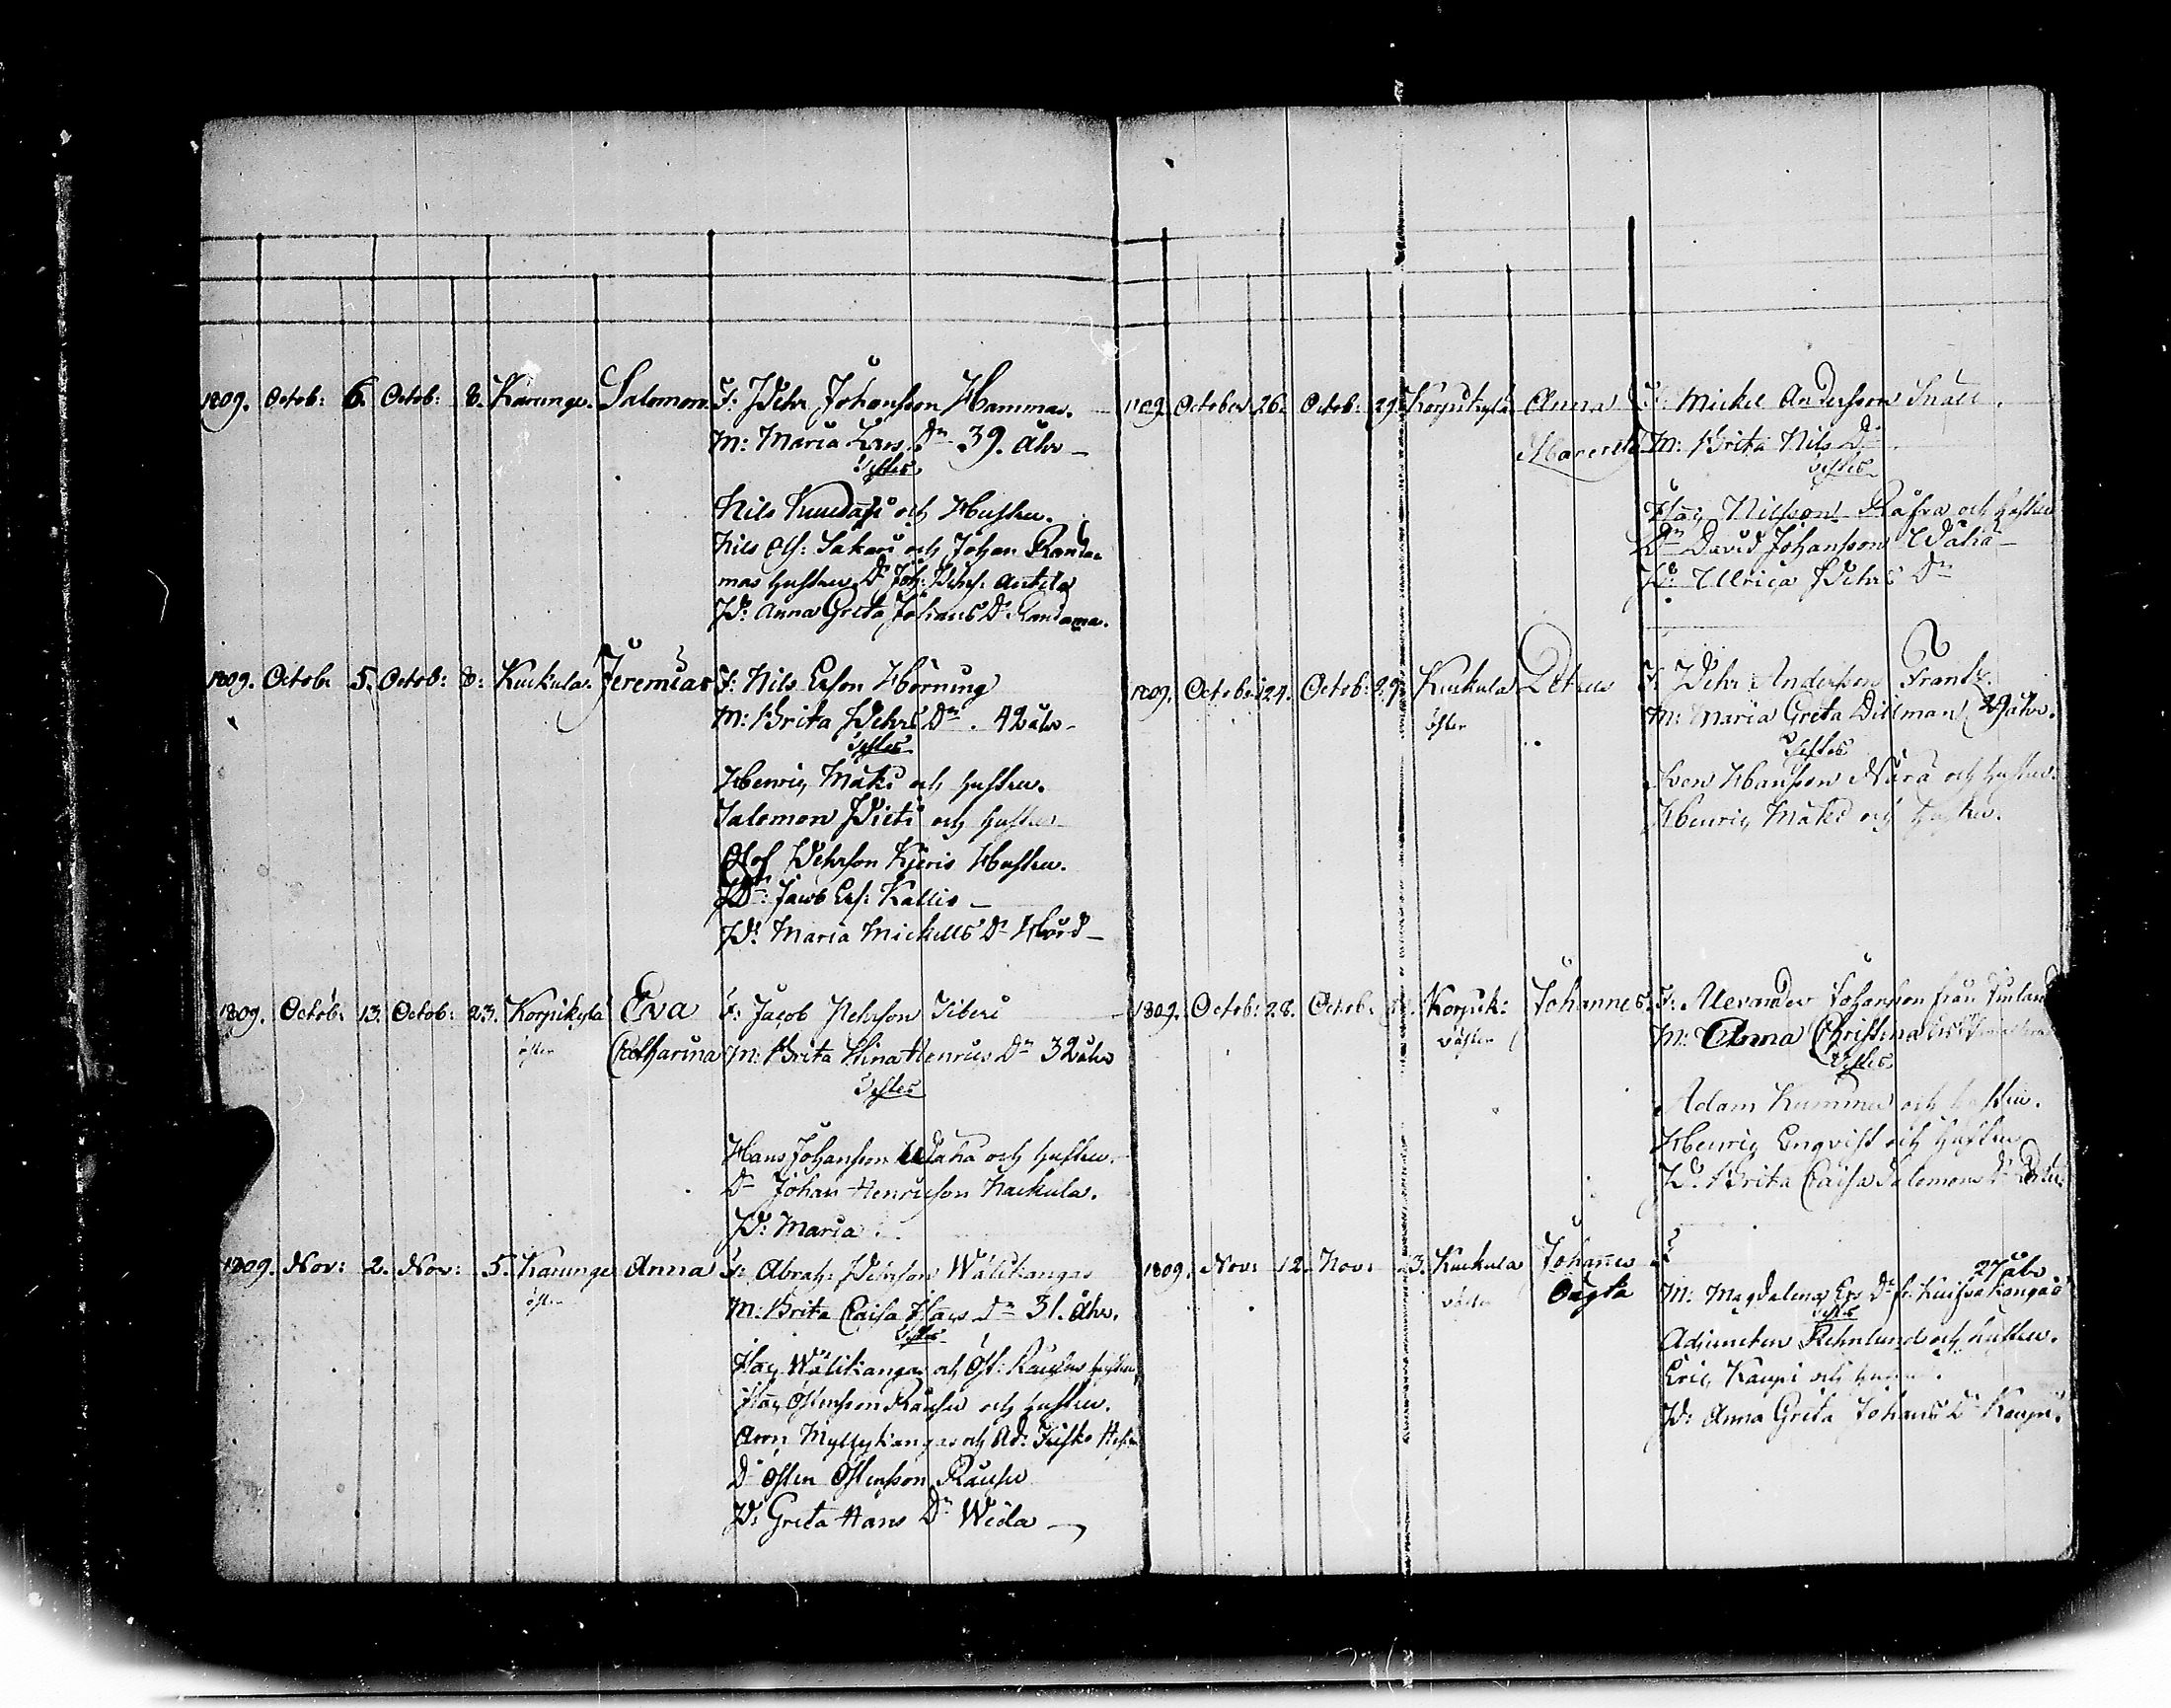 1809. Octob: 6. Octob: 8. Karunge. Salomon. F: Pehr Johansson Hammas.
M: Maria Lars Dr 39. åhr
Testes
Nils och Hustru.
Nils Olf: Sakari och Johan Randa-
mas hustru Dr Joh: Pehrs: Antila
P: Anna Greta Johans Dr Randama.
1809. Octob: 5. Octob: 8. Kuckula. Jeremias F: Nils Erson Hörning
M: Brita Pehrs Dr. 42 åhr
Testes
Henric Mäki och hustru.
Salomon Pieti och hustru
Olof Pehrson Kieris Hustru.
Dr: Jacob Ers: Kallio
P: Maria Mickells Dr Hörd
1809. Octob: 13. Octob: 23. Korpikylä Eva F: Jacob Pehrson Siberi
öster Catharina M: Brita Stina Henrics Dr 32 åhr
Testes
Hans Johansson Waha och hustru.
Dr Johan Henricson Nackula.
P: Maria
1809. Nov: 2. Nov: 5. Karunge Anna F: Abrah: Pehrson Wälikangas
öster M: Brita Caisa Isacs Dr 31. åhr.
Testes
Isac Wälikangas och Öst: Rauhas hustru
Isac Östensson Rauhu och hustru.
Aron Myllykangas och Ad:
Dr Östen Östensson Rauhu
P: Greta Hans Dr Weda
1809. October 26. Octob: 29. Korpikylä Anna F: Mickel Andersson Snäll.
M: Brita Nils Dr
Testes
Isac Nilsson och hustru
Dr David Johansson Waha
P: Ulrica Pehrs Dr
1809. October 24. Octob: 29. Kuckula Petrus F: Pehr Andersson Frantz.
öster M: Maria Greta Dillman 29 åhr.
Testes
Sven Hansson Nara och hustru.
Henric Mäki och hustru.
1809. Octob: 28. Octob: Korpik: Johannes. F: Alexander Johansson från Finland
väster M: Anna Christina
Testes
Adam Kummu och hustru.
Henric Enqvist och hustru
P: Brita Caisa Salomons Dr
1809. Nov: 12. Nov: Kuckula Johannes
27 åhr
väster Oägta M: Magdalena Ers Dr fr: Kuifvakangas
Testes
Adjuncten Rehnlund och hustru.
Eric Kaupi och
P: Anna Greta Johans Dr Kaupi.